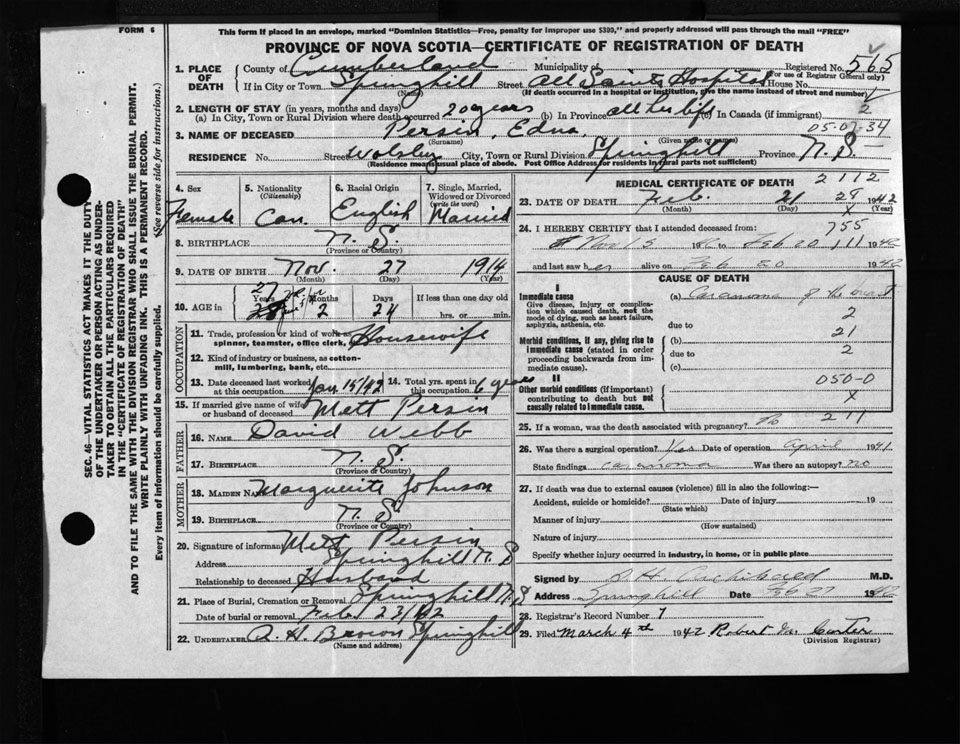 FORM 6
This form if placed in an envelope, marked "Dominion Statistics—Free, penalty for improper use $300," and properly addressed will pass through the mail "FREE"
PROVINCE OF NOVA SCOTIA—CERTIFICATE OF REGISTRATION OF DEATH
Registered No. 565
(For use of Registrar General only)
1. PLACE OF DEATH
County of Cumberland Municipality of
If in City or Town Springhill Street All Saints Hospital House No.
(Name) (If death occurred in a hospital or institution, give the name instead of street and number)
2. LENGTH OF STAY (in years, months and days)
(a) In City, Town or Rural Division where death occurred 20 years (b) In Province all her life (c) In Canada (if immigrant)
2
05-0
34
3. NAME OF DECEASED Persin, Edna
(Surname) (Given name or names)
RESIDENCE No. Street Wolsley City, Town or Rural Division Springhill Province N. S.
(Residence means usual place of abode. Post Office Address for residents in rural parts not sufficient)
4. Sex
Female
5. Nationality
(Citizenship)
Can.
6. Racial Origin
English
7. Single, Married, Widowed or Divorced
(write the word)
Married
8. BIRTHPLACE N. S.
(Province or Country)
9. DATE OF BIRTH Nov. 27 1914
(Month) (Day) (Year)
10. AGE in
27
Years Months Days If less than one day old
28 2 24 hrs. or min.
OCCUPATION
11. Trade, profession or kind of work as spinner, teamster, office clerk, Housewife
12. Kind of industry or business, as cotton-mill, lumbering, bank, etc.
13. Date deceased last worked at this occupation Jan 15/42
14. Total yrs. spent in this occupation 6 years
15. If married give name of wife or husband of deceased Matt Persin
FATHER
16. NAME David Webb
17. BIRTHPLACE N. S.
(Province or Country)
MOTHER
18. MAIDEN NAME Marguerite Johnson
19. BIRTHPLACE N. S.
(Province or Country)
20. Signature of informant Matt Persin
Address Springhill N. S
Relationship to deceased Husband
21. Place of Burial, Cremation or Removal Springhill N. S
Date of burial or removal Feb. 23/42
22. UNDERTAKER A. H. Brown Springhill
(Name and address)
MEDICAL CERTIFICATE OF DEATH
2112
23. DATE OF DEATH Feb. 21 1942
(Month) (Day) (Year)
X
24. I HEREBY CERTIFY that I attended deceased from:
755
Nov 15 19 Feb 20 1942
111
and last saw her alive on Feb 20 1942
CAUSE OF DEATH
I
Immediate cause
Give disease, injury or complication which caused death, not the mode of dying, such as heart failure, asphyxia, asthenia, etc.
(a) Carcinoma of the breast
2
due to
Morbid conditions, if any, giving rise to immediate cause (stated in order proceeding backwards from immediate cause).
(b)
21
due to
2
(c)
II
Other morbid conditions (if important) contributing to death but not causally related to immediate cause.
050-0
X
25. If a woman, was the death associated with pregnancy? No
211
26. Was there a surgical operation? Yes Date of operation April 1941
State findings carcinoma Was there an autopsy? no
27. If death was due to external causes (violence) fill in also the following:—
Accident, suicide or homicide? Date of injury 19
(State which)
Manner of injury
(How sustained)
Nature of injury
Specify whether injury occurred in industry, in home, or in public place
Signed by M.D.
Address Springhill Date Feb 27 1942
28. Registrar's Record Number 7
29. Filed March 4th 1942 Robert Carter
(Division Registrar)
SEC. 46—VITAL STATISTICS ACT MAKES IT THE DUTY
OF THE UNDERTAKER OR PERSON ACTING AS UNDER-
TAKER TO OBTAIN ALL THE PARTICULARS REQUIRED
IN THE "CERTIFICATE OF REGISTRATION OF DEATH"
AND TO FILE THE SAME WITH THE DIVISION REGISTRAR WHO SHALL ISSUE THE BURIAL PERMIT.
WRITE PLAINLY WITH UNFADING INK. THIS IS A PERMANENT RECORD.
Every item of information should be carefully supplied. (See reverse side for instructions.)